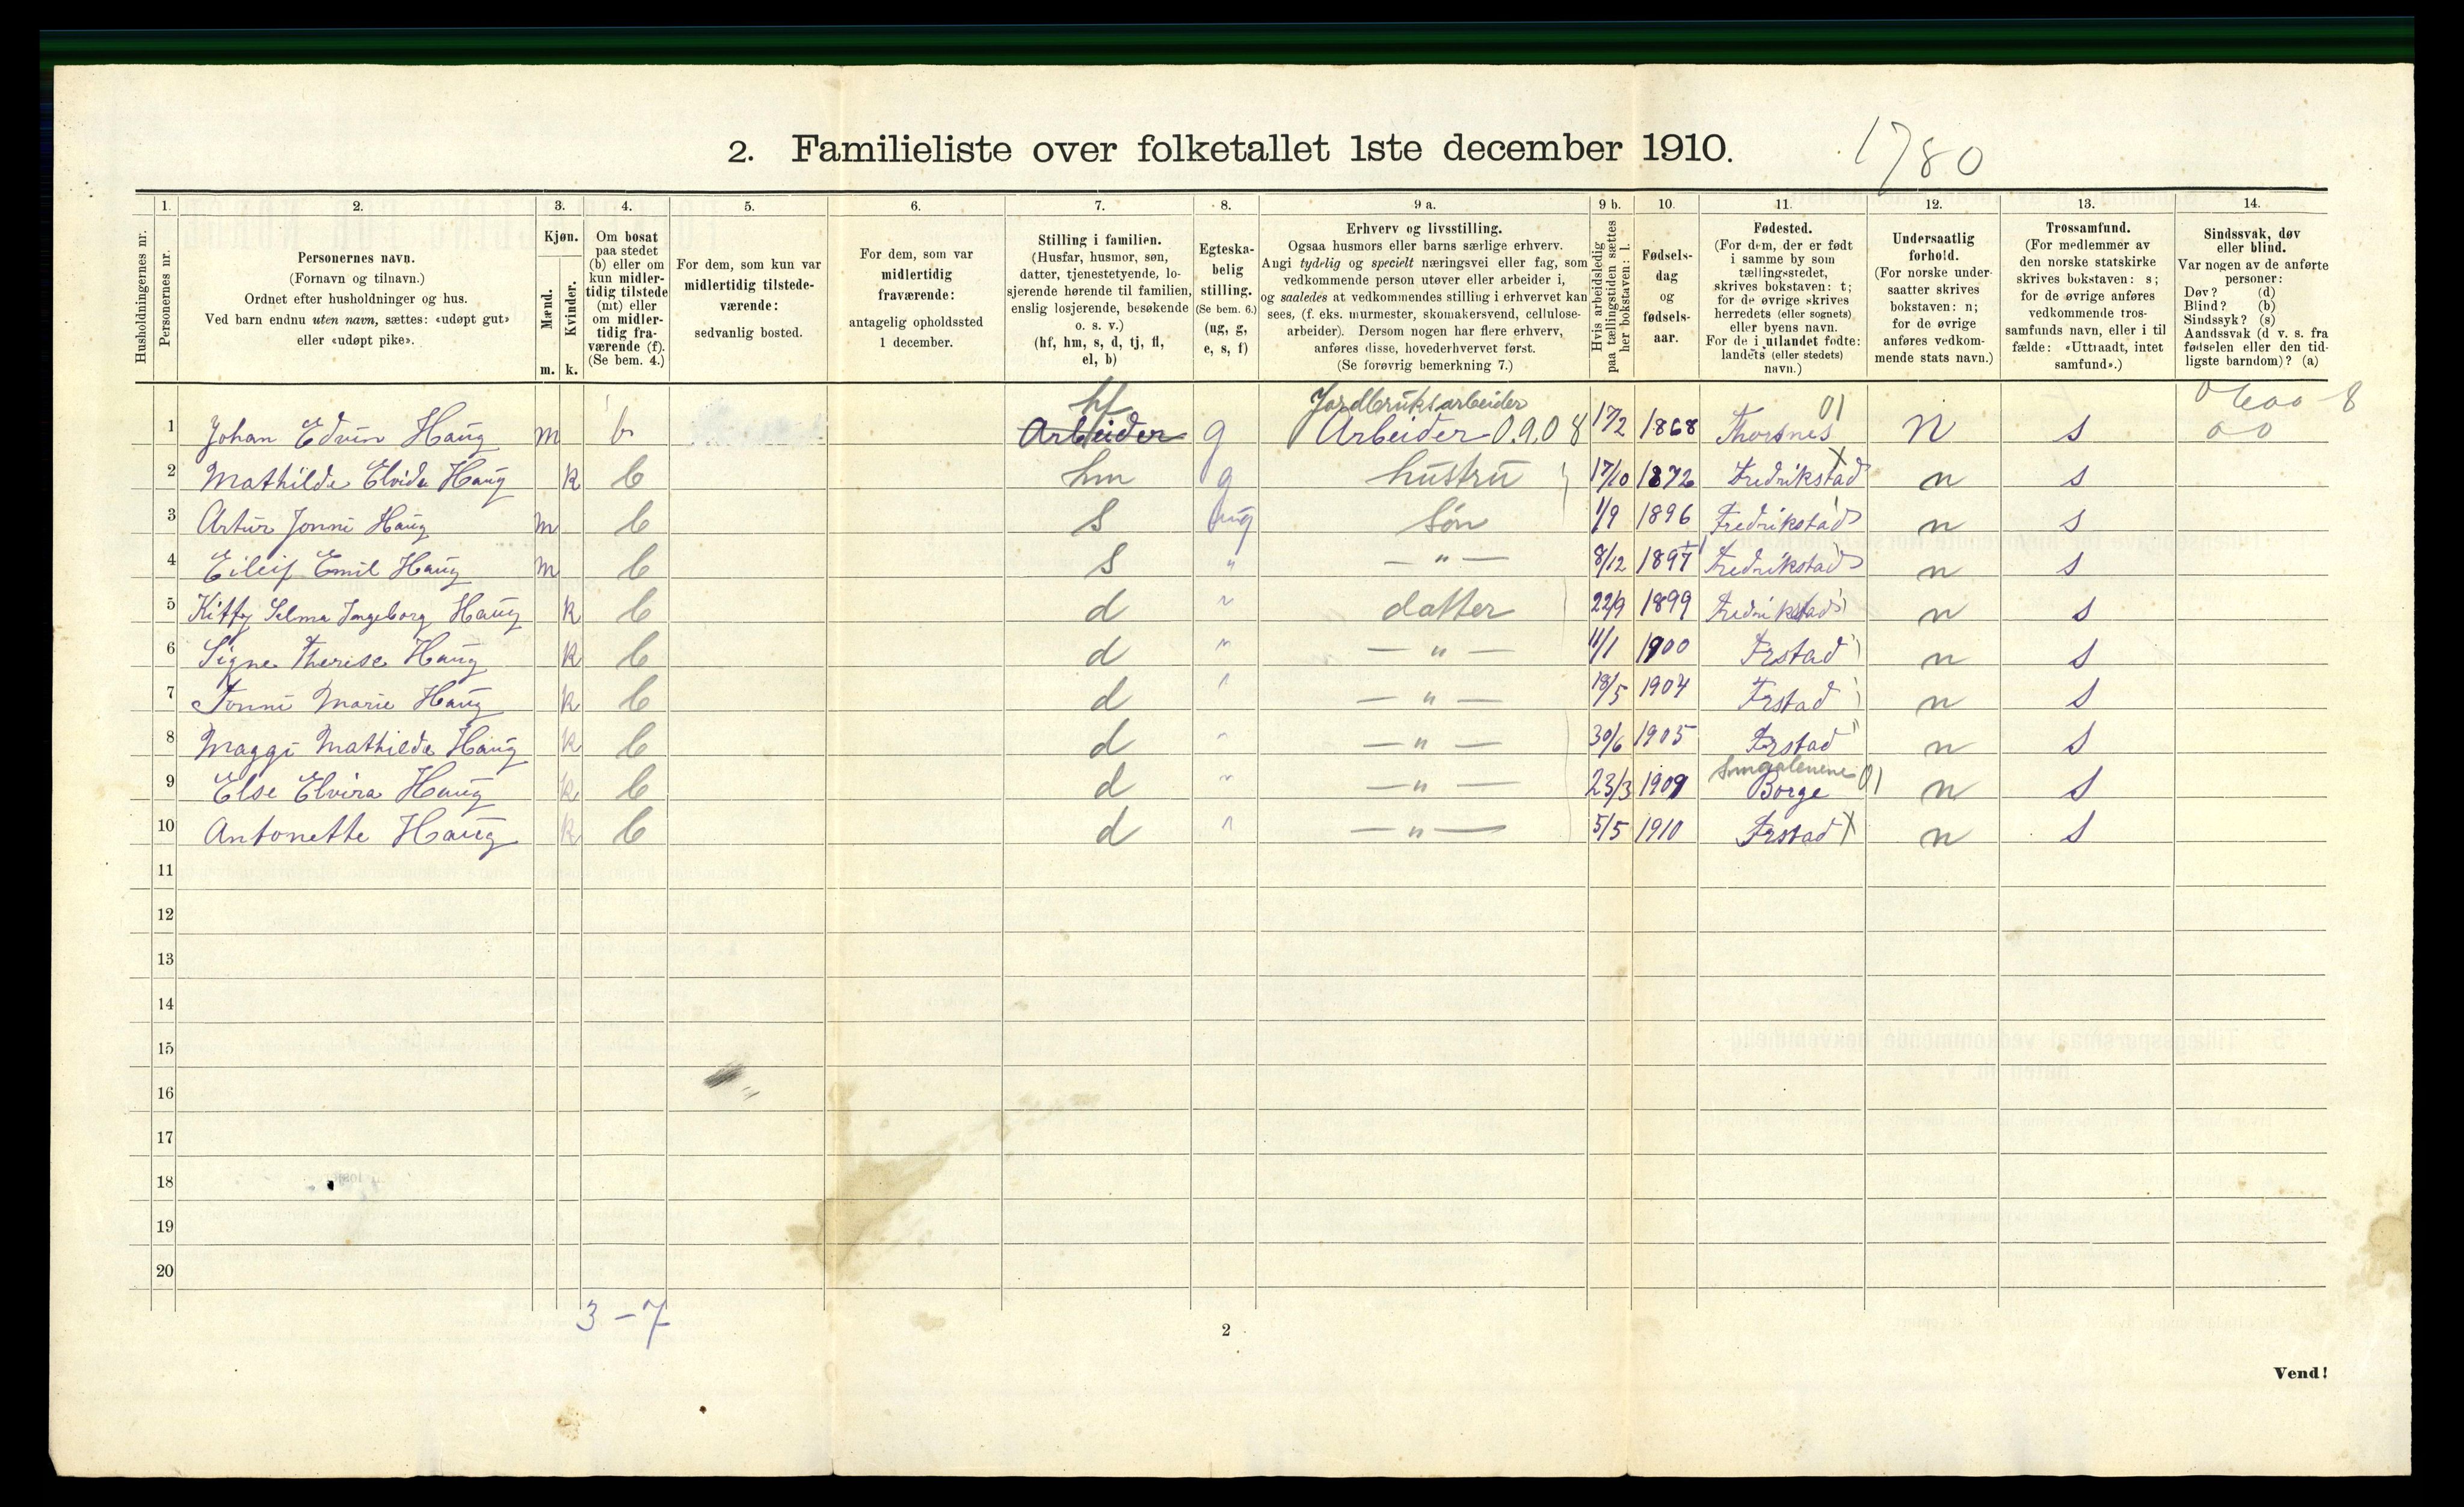 2. Familieliste over folketallet 1ste december 1910.
1780
1. 2. 3. 4. 5. 6. 7. 8. 9 a. 9 b. 10. 11. 12. 13. 14.
Husholdningernes nr.
Personernes nr.
Personernes navn.
(Fornavn og tilnavn.)
Ordnet efter husholdninger og hus.
Ved barn endnu uten navn, sættes: «udøpt gut»
eller «udøpt pike».
Kjøn.
Mænd.
Kvinder.
m. k.
Om bosat
paa stedet
(b) eller om
kun midler-
tidig tilstede
(mt) eller
om midler-
tidig fra-
værende (f).
(Se bem. 4.)
For dem, som kun var
midlertidig tilstede-
værende:
sedvanlig bosted.
For dem, som var
midlertidig
fraværende:
antagelig opholdssted
1 december.
Stilling i familien.
(Husfar, husmor, søn,
datter, tjenestetyende, lo-
sjerende hørende til familien,
enslig losjerende, besøkende
o. s. v.)
(hf, hm, s, d, tj, fl,
el, b)
Egteska-
belig
stilling.
(Se bem. 6.)
(ug, g,
e, s, f)
Erhverv og livsstilling.
Ogsaa husmors eller barns særlige erhverv.
Angi tydelig og specielt næringsvei eller fag, som
vedkommende person utøver eller arbeider i,
og saaledes at vedkommendes stilling i erhvervet kan
sees, (f. eks. murmester, skomakersvend, cellulose-
arbeider). Dersom nogen har flere erhverv,
anføres disse, hovederhvervet først.
(Se forøvrig bemerkning 7.)
Hvis arbeidsledig
paa tællingstiden sættes
her bokstaven: l.
Fødsels-
dag
og
fødsels-
aar.
Fødested.
(For dem, der er født
i samme by som
tællingsstedet,
skrives bokstaven: t;
for de øvrige skrives
herredets (eller sognets)
eller byens navn.
For de i utlandet fødte:
landets (eller stedets)
navn.)
Undersaatlig
forhold.
(For norske under-
saatter skrives
bokstaven: n;
for de øvrige
anføres vedkom-
mende stats navn.)
Trossamfund.
(For medlemmer av
den norske statskirke
skrives bokstaven: s;
for de øvrige anføres
vedkommende tros-
samfunds navn, eller i til
fælde: «Uttraadt, intet
samfund».)
Sindssvak, døv
eller blind.
Var nogen av de anførte
personer:
Døv? (d)
Blind? (b)
Sindssyk? (s)
Aandssvak (d v. s. fra
fødselen eller den tid-
ligste barndom)? (a)
hf Jordbruksarbeider 01
1 Johan Edvin Haug m b Arbeider g Arbeider 0.9.0 8 17/2 1868 Thorsnes n s
2 Mathilde Elvida Haug k b hm g hustru 17/10 1872 Fredrikstad n s
3 Artur Jonni Haug m b s ug søn 1/9 1896 Fredrikstad n s
4 Eileif Emil Haug m b s " — " — 8/12 1897 Fredrikstad n s
5 Kitty Selma Ingeborg Haug k b d " datter 22/9 1899 Fredrikstad n s
6 Signe Therese Haug k b d " — " — 11/1 1900 Frstad n s
7 Jonni Marie Haug k b d " — " — 18/5 1904 Frstad n s
8 Maggi Mathilde Haug k b d " — " — 30/6 1905 Frstad n s
Smaalenene
9 Else Elvira Haug k b d " — " — 23/3 1909 Borge 01 n s
10 Antonette Haug k b d " — " — 5/5 1910 Frstad n s
11
12
13
14
15
16
17
18
19
20
3 - 7
2
Vend!